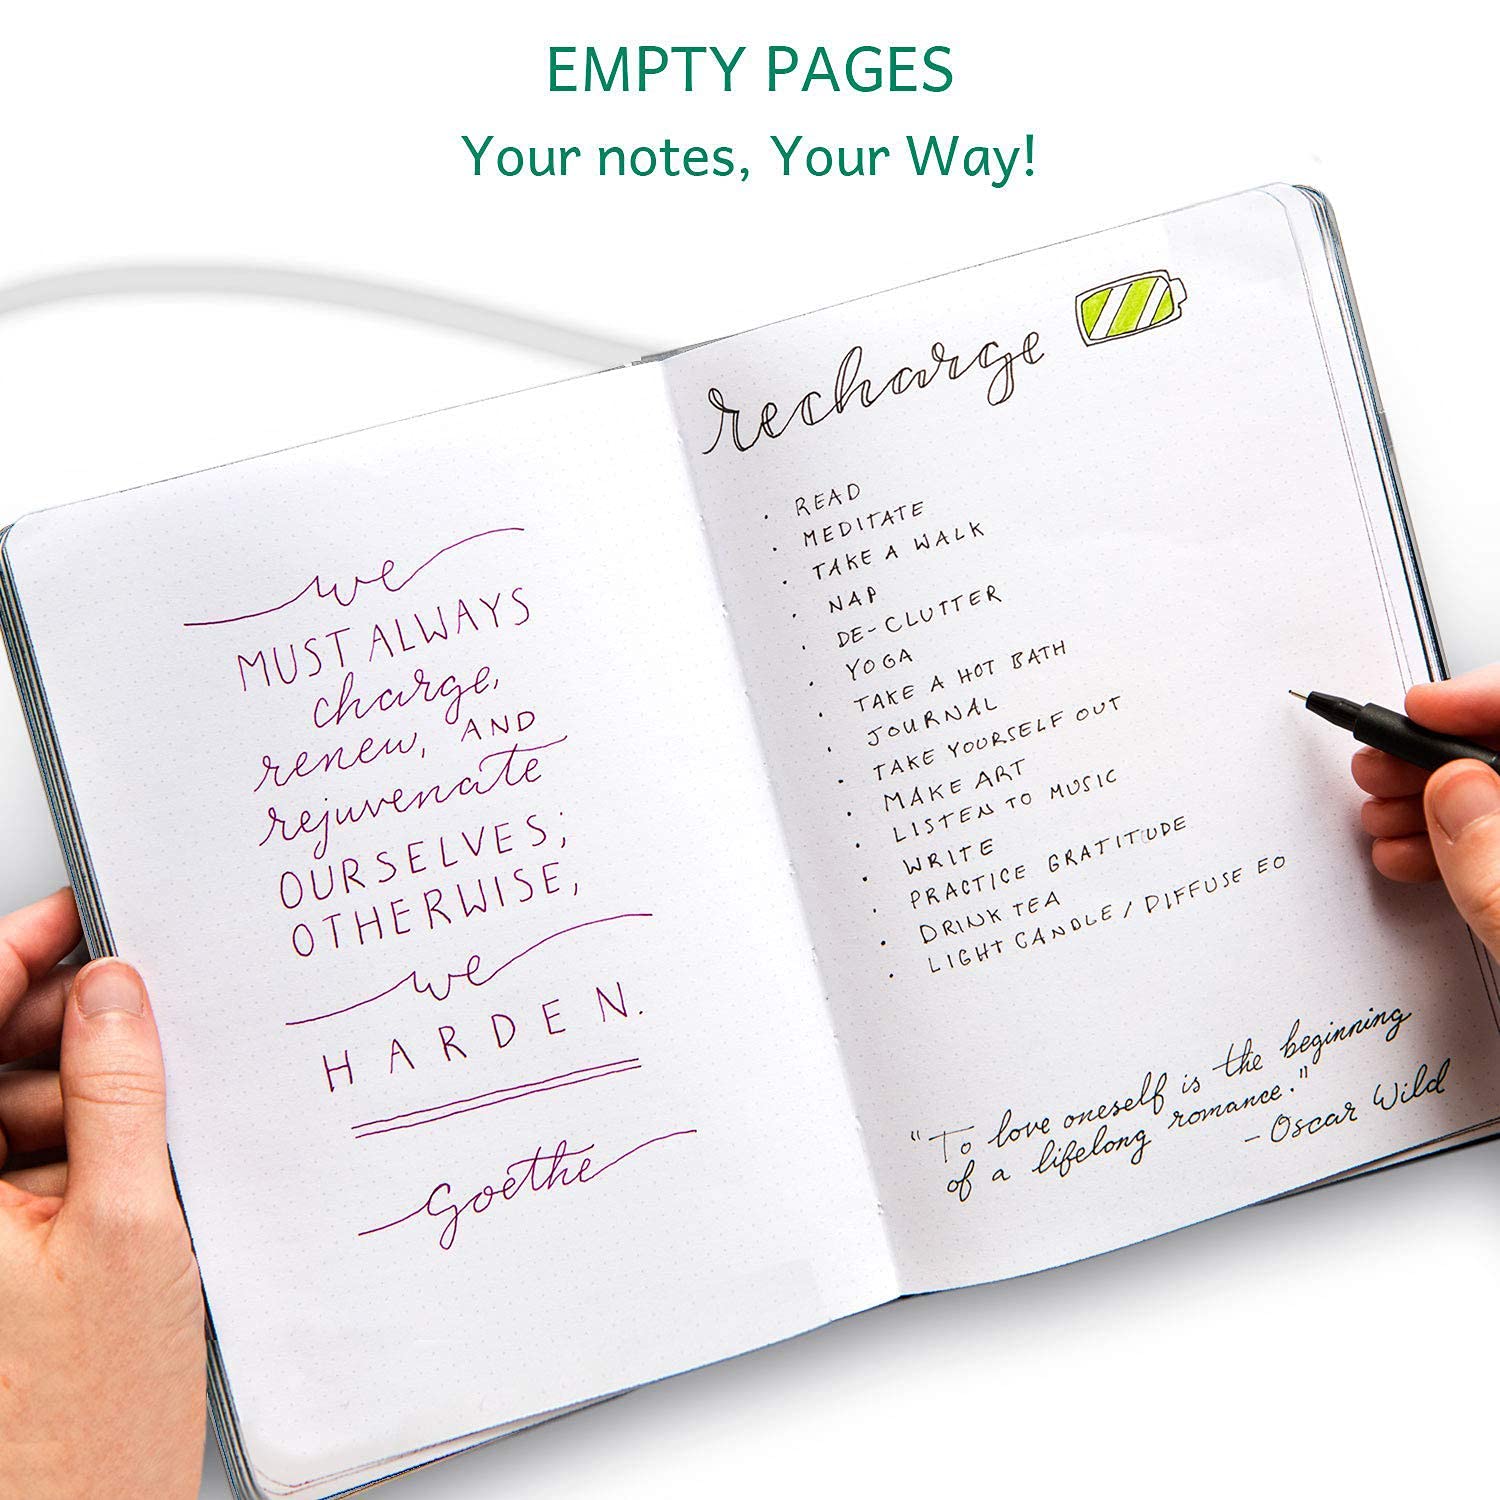 EMPTY PAGES
Your notes, Your Way!
we
MUST ALWAYS
charge,
renew, AND
rejuvenate
OURSELVES;
OTHERWISE,
we
HARDEN.
Goethe
recharge
• READ
• MEDITATE
• TAKE A WALK
• NAP
• DE-CLUTTER
• YOGA
• TAKE A HOT BATH
• JOURNAL
• TAKE YOURSELF OUT
• MAKE ART
• LISTEN TO MUSIC
• WRITE
• PRACTICE GRATITUDE
• DRINK TEA
• LIGHT CANDLE / DIFFUSE EO
"To love oneself is the beginning
of a lifelong romance."
- Oscar Wild